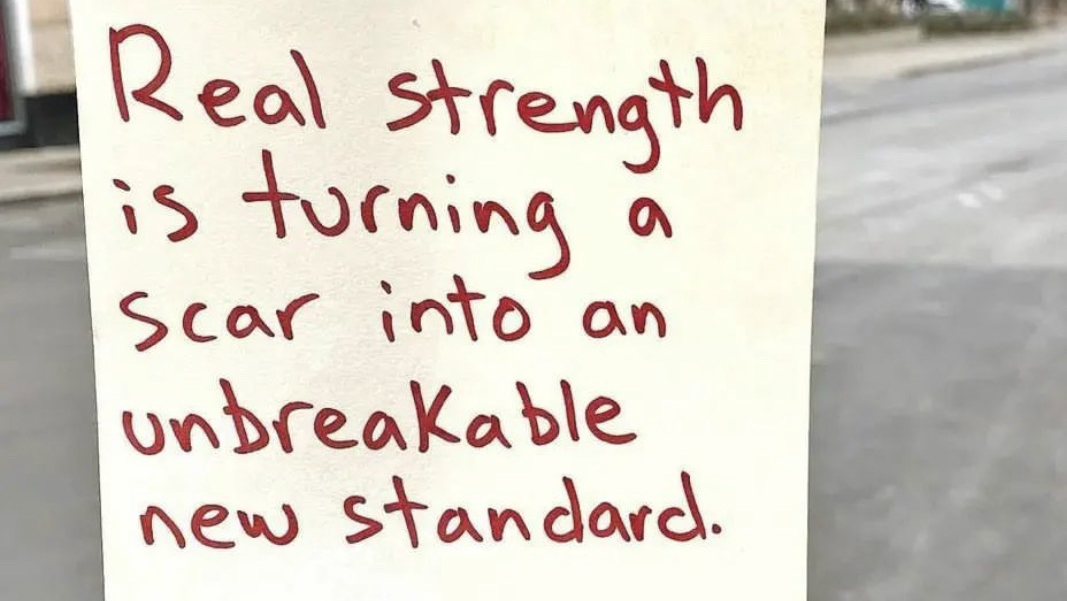 Real strength
is turning a
scar into an
unbreakable
new standard.